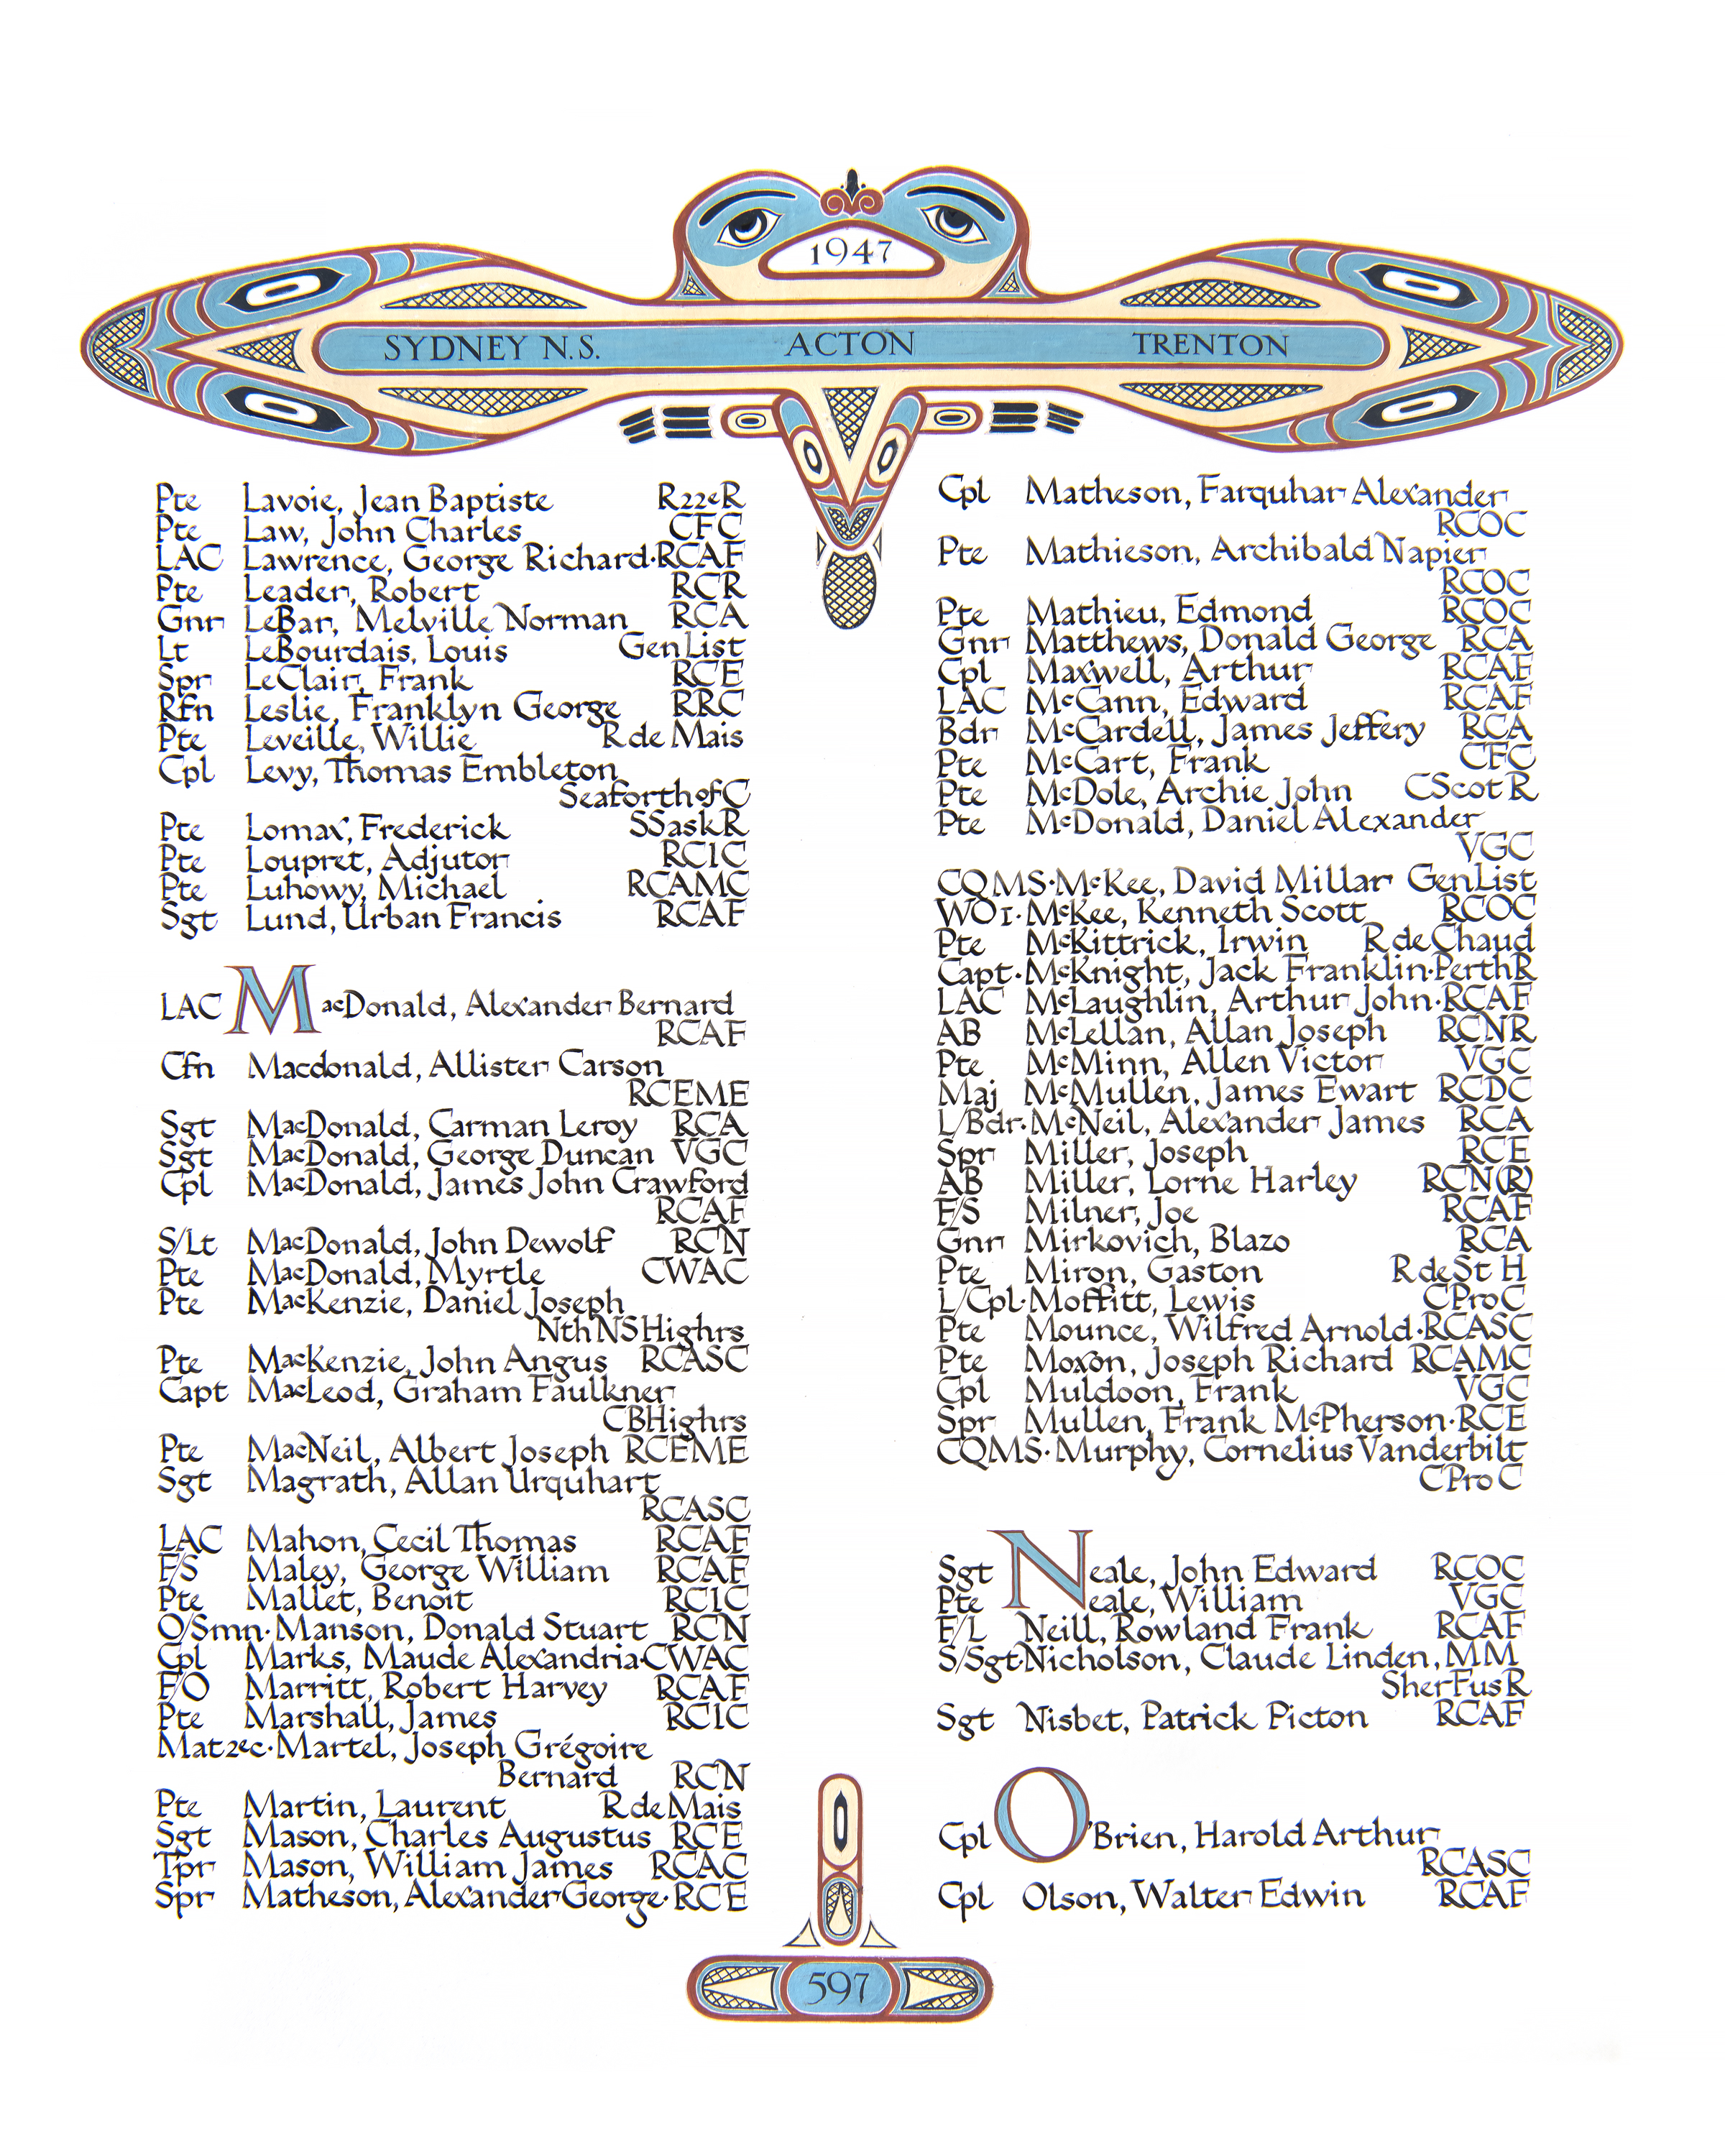 1947
SYDNEY N.S. ACTON TRENTON
Pte Lavoie, Jean Baptiste R22eR
Pte Law, John Charles CFC
LAC Lawrence, George Richard·RCAF
Pte Leader, Robert RCR
Gnr LeBar, Melville Norman RCA
Lt LeBourdais, Louis Gen List
Spr LeClair, Frank RCE
Rfn Leslie, Franklyn George RRC
Pte Leveille, Willie R de Mais
Cpl Levy, Thomas Embleton
Seaforth of C
Pte Lomax, Frederick SSaskR
Pte Loupret, Adjutor RCIC
Pte Luhowy, Michael RCAMC
Sgt Lund, Urban Francis RCAF
LAC MacDonald, Alexander Bernard
RCAF
Cfn Macdonald, Allister Carson
RCEME
Sgt MacDonald, Carman Leroy RCA
Sgt MacDonald, George Duncan VGC
Cpl MacDonald, James John Crawford
RCAF
S/Lt MacDonald, John Dewolf RCN
Pte MacDonald, Myrtle CWAC
Pte MacKenzie, Daniel Joseph
Nth NS Highrs
Pte MacKenzie, John Angus RCASC
Capt MacLeod, Graham Faulkner
CBHighrs
Pte MacNeil, Albert Joseph RCEME
Sgt Magrath, Allan Urquhart
RCASC
LAC Mahon, Cecil Thomas RCAF
F/S Maley, George William RCAF
Pte Mallet, Benoit RCIC
O/Smn·Manson, Donald Stuart RCN
Cpl Marks, Maude Alexandria·CWAC
F/O Marritt, Robert Harvey RCAF
Pte Marshall, James RCIC
Mat2ec·Martel, Joseph Grégoire
Bernard RCN
Pte Martin, Laurent R de Mais
Sgt Mason, Charles Augustus RCE
Tpr Mason, William James RCAC
Spr Matheson, Alexander George·RCE
Cpl Matheson, Farquhar Alexander
RCOC
Pte Mathieson, Archibald Napier
RCOC
Pte Mathieu, Edmond RCOC
Gnr Matthews, Donald George RCA
Cpl Maxwell, Arthur RCAF
LAC McCann, Edward RCAF
Bdr McCardell, James Jeffery RCA
Pte McCart, Frank CFC
Pte McDole, Archie John CScot R
Pte McDonald, Daniel Alexander
VGC
CQMS·McKee, David Millar Gen List
WO1·McKee, Kenneth Scott RCOC
Pte McKittrick, Irwin R de Chaud
Capt·McKnight, Jack Franklin·PerthR
LAC McLaughlin, Arthur John·RCAF
AB McLellan, Allan Joseph RCNR
Pte McMinn, Allen Victor VGC
Maj McMullen, James Ewart RCDC
L/Bdr·McNeil, Alexander James RCA
Spr Miller, Joseph RCE
AB Miller, Lorne Harley RCN(R)
F/S Milner, Joe RCAF
Gnr Mirkovich, Blazo RCA
Pte Miron, Gaston R de St H
L/Cpl·Moffitt, Lewis CProC
Pte Mounce, Wilfred Arnold·RCASC
Pte Moxon, Joseph Richard RCAMC
Cpl Muldoon, Frank VGC
Spr Mullen, Frank McPherson·RCE
CQMS·Murphy, Cornelius Vanderbilt
CProC
Sgt Neale, John Edward RCOC
Pte Neale, William VGC
F/L Neill, Rowland Frank RCAF
S/Sgt·Nicholson, Claude Linden, MM
SherFusR
Sgt Nisbet, Patrick Picton RCAF
Cpl O'Brien, Harold Arthur
RCASC
Cpl Olson, Walter Edwin RCAF
597